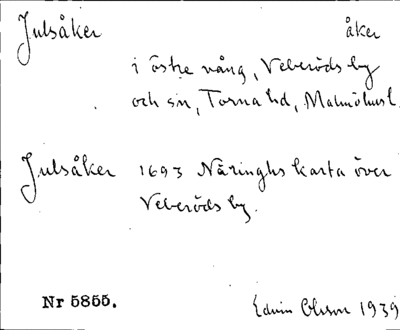 Julsåker åker
i östre vång, Veberöds by
och sn, Torna hd, Malmöhus l.
Julsåker 1693 Näringhs karta över
Veberöds by.
Nr 5855. Edvin Olsson 1939